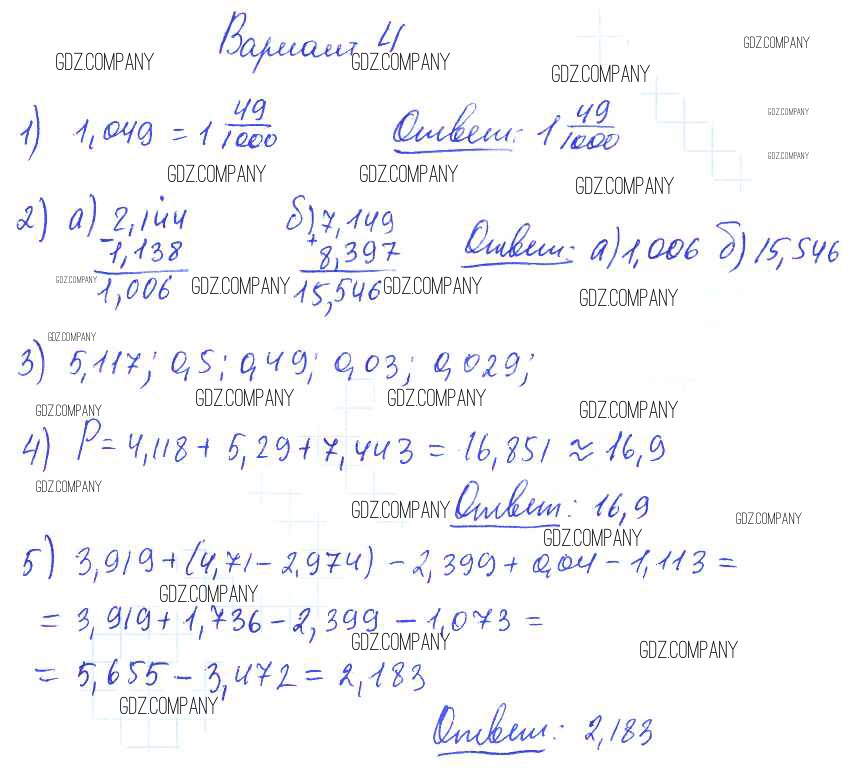 Вариант 4
GDZ.COMPANY GDZ.COMPANY GDZ.COMPANY GDZ.COMPANY
1) 1,049 = 1 49/1000 Ответ: 1 49/1000
GDZ.COMPANY GDZ.COMPANY
GDZ.COMPANY GDZ.COMPANY GDZ.COMPANY
2) а) 2,144 б) 7,149
- 1,138 + 8,397 Ответ: а) 1,006 б) 15,546
GDZ.COMPANY 1,006 GDZ.COMPANY 15,546 GDZ.COMPANY GDZ.COMPANY
GDZ.COMPANY
3) 5,117; 0,5; 0,49; 0,03; 0,029;
GDZ.COMPANY GDZ.COMPANY GDZ.COMPANY GDZ.COMPANY
4) P = 4,118 + 5,29 + 7,443 = 16,851 ≈ 16,9
GDZ.COMPANY GDZ.COMPANY Ответ: 16,9 GDZ.COMPANY
GDZ.COMPANY
5) 3,919 + (4,71 - 2,974) - 2,399 + 0,04 - 1,113 =
GDZ.COMPANY
= 3,919 + 1,736 - 2,399 - 1,073 =
GDZ.COMPANY GDZ.COMPANY
= 5,655 - 3,472 = 2,183
GDZ.COMPANY
Ответ: 2,183